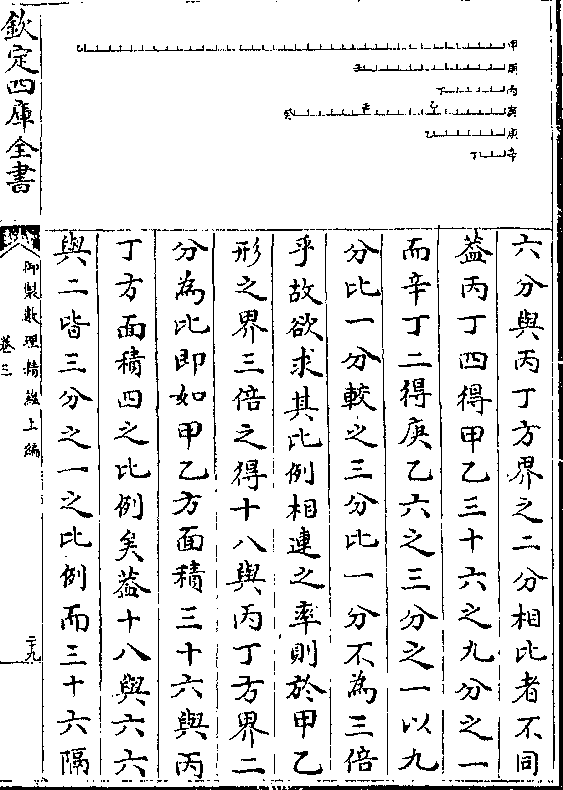 甲 乙
丙 丁
庚 乙
辛 丁
六分與丙丁方界之二分相比者不同
葢丙丁四得甲乙三十六之九分之一
而辛丁二得庚乙六之三分之一以九
分比一分較之三分比一分不為三倍
乎故欲求其比例相連之率則於甲乙
形之界三倍之得十八與丙丁方界二
分為比即如甲乙方面積三十六與丙
丁方面積四之比例矣葢十八與六六
與二皆三分之一之比例而三十六隔
欽定四庫全書
御製數理精蘊上編
卷三
二九